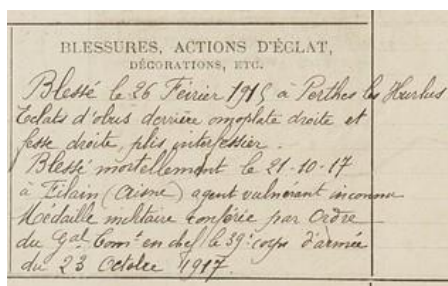 BLESSURES, ACTIONS D'ÉCLAT,
DÉCORATIONS, ETC.
Blessé le 26 Février 1915 à Perthes les Hurlus
Eclats d'obus derrière omoplate droite et
fesse droite, plis interfessier.
Blessé mortellement le 21-10-17
à Filain (Aisne) agent vulnérant inconnu
Médaille militaire conférée par Ordre
du Gal Comt en chef le 39e corps d'armée
du 23 Octobre 1917.